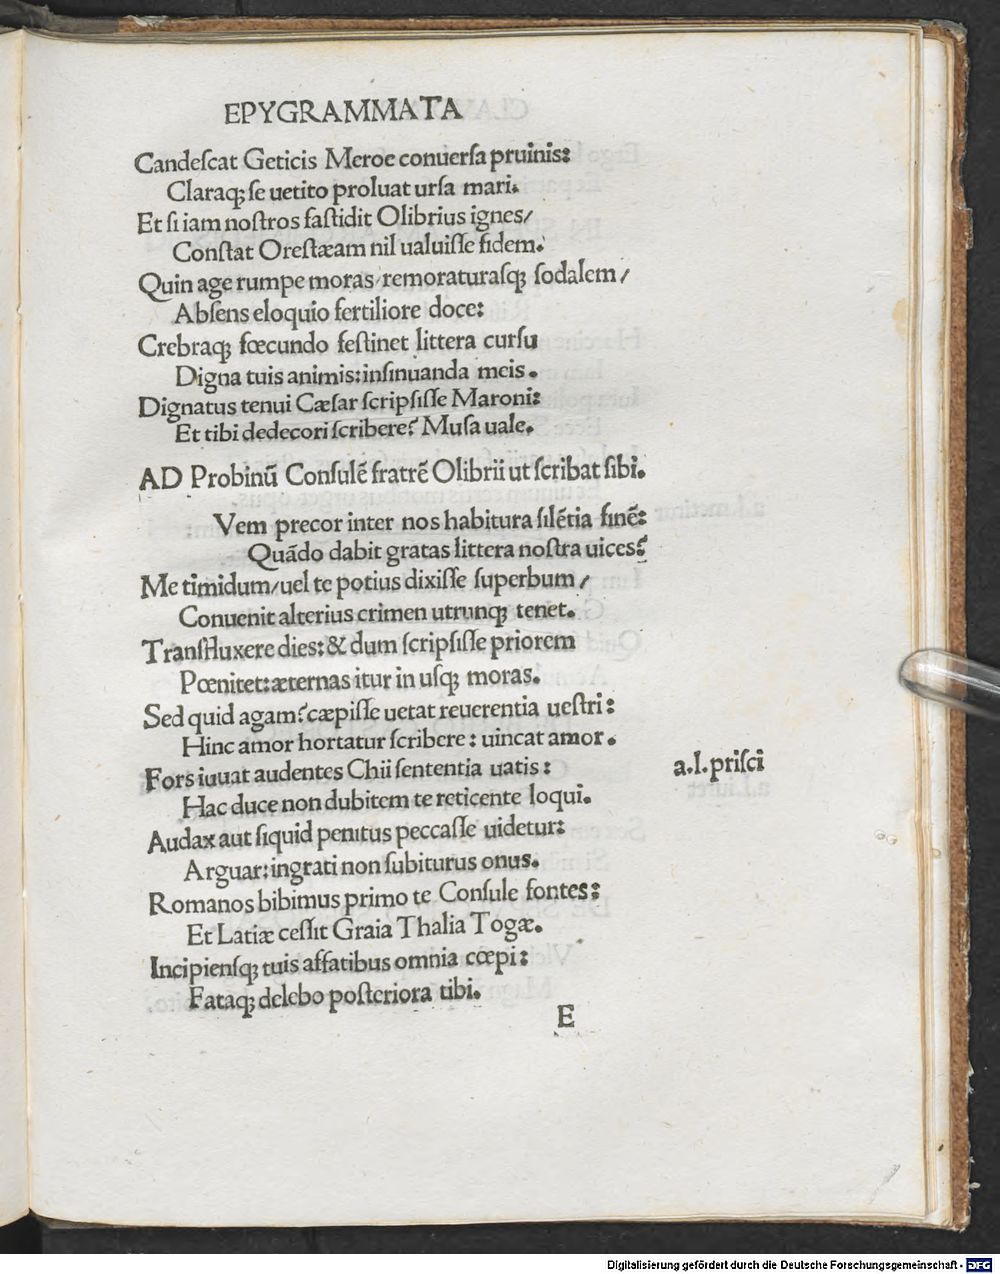 EPYGRAMMATA
Candeſcat Geticis Meroe conuerſa pruinis:
Claraqꝫ ſe uetito proluat urſa mari.
Et ſi iam noſtros faſtidit Olibrius ignes/
Conſtat Oreſtæam nil ualuiſſe fidem.
Quin age rumpe moras/remoraturaſqꝫ ſodalem/
Abſens eloquio fertiliore doce:
Crebraqꝫ fœcundo feſtinet littera curſu
Digna tuis animis:inſinuanda meis.
Dignatus tenui Cæſar ſcripſiſſe Maroni:
Et tibi dedecori ſcribere? Muſa uale.
AD Probinū Conſulē fratrē Olibrii ut ſcribat ſibi.
Vem precor inter nos habitura ſilētia finē:
Quādo dabit gratas littera noſtra uices?
Me timidum/uel te potius dixiſſe ſuperbum/
Conuenit alterius crimen utrunqꝫ tenet.
Tranſfluxere dies:& dum ſcripſiſſe priorem
Pœnitet:æternas itur in uſqꝫ moras.
Sed quid agam?cæpiſſe uetat reuerentia ueſtri:
Hinc amor hortatur ſcribere: uincat amor.
Fors iuuat audentes Chii ſententia uatis:
a.l.priſci
Hac duce non dubitem te reticente loqui.
Audax aut ſiquid penitus peccaſſe uidetur:
Arguar:ingrati non ſubiturus onus.
Romanos bibimus primo te Conſule fontes:
Et Latiæ ceſſit Graia Thalia Togæ.
Incipienſqꝫ tuis affatibus omnia cœpi:
Fataqꝫ delebo poſteriora tibi.
E
Digitalisierung gefördert durch die Deutsche Forschungsgemeinschaft - DFG